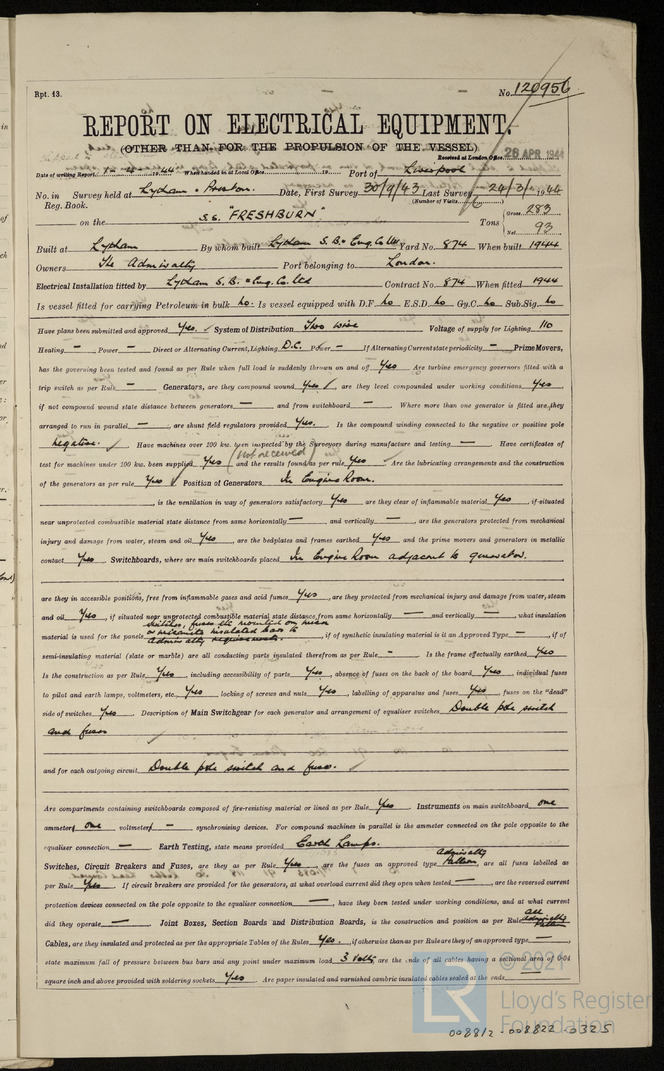 Rpt. 13.
No. 120956
REPORT ON ELECTRICAL EQUIPMENT.
(OTHER THAN FOR THE PROPULSION OF THE VESSEL)
Received at London Office 26 APR 1944
Date of writing Report 19 44 When handed in at Local Office 19 Port of Liverpool
No. in Survey held at Lytham & Preston. Date, First Survey 30/9/43 Last Survey 24/3/ 1944
Reg. Book. (Number of Visits )
on the S.S. "FRESHBURN" Tons { Gross 283
Net 93
Built at Lytham By whom built Lytham S.B. & Eng. Co Ltd Yard No. 874 When built 1944
Owners The Admiralty Port belonging to London.
Electrical Installation fitted by Lytham S.B. & Eng. Co. Ltd Contract No. 874 When fitted 1944
Is vessel fitted for carrying Petroleum in bulk No. Is vessel equipped with D.F. No E.S.D. No Gy.C. No Sub.Sig. No
Have plans been submitted and approved Yes. System of Distribution Two wire Voltage of supply for Lighting 110
Heating — Power — Direct or Alternating Current, Lighting D.C. Power — If Alternating Current state periodicity — Prime Movers,
has the governing been tested and found as per Rule when full load is suddenly thrown on and off Yes Are turbine emergency governors fitted with a
trip switch as per Rule — Generators, are they compound wound Yes, are they level compounded under working conditions Yes,
if not compound wound state distance between generators — and from switchboard — Where more than one generator is fitted are they
arranged to run in parallel —, are shunt field regulators provided Yes. Is the compound winding connected to the negative or positive pole
negative. Have machines over 200 kw. been inspected by the Surveyors during manufacture and testing — Have certificates of
test for machines under 100 kw. been supplied Yes (Not received) and the results found as per rule Yes Are the lubricating arrangements and the construction
of the generators as per rule Yes Position of Generators In Engine Room.
, is the ventilation in way of generators satisfactory Yes are they clear of inflammable material Yes, if situated
near unprotected combustible material state distance from same horizontally — and vertically —, are the generators protected from mechanical
injury and damage from water, steam and oil Yes, are the bedplates and frames earthed Yes and the prime movers and generators in metallic
contact Yes Switchboards, where are main switchboards placed In Engine Room adjacent to generator.
are they in accessible positions, free from inflammable gases and acid fumes Yes, are they protected from mechanical injury and damage from water, steam
and oil Yes, if situated near unprotected combustible material state distance from same horizontally — and vertically —, what insulation
switches, fuses etc mounted on mica
or micanite insulated bars to
material is used for the panels Admiralty requirements., if of synthetic insulating material is it an Approved Type —, if of
semi-insulating material (slate or marble) are all conducting parts insulated therefrom as per Rule - Is the frame effectually earthed Yes
Is the construction as per Rule Yes, including accessibility of parts Yes, absence of fuses on the back of the board Yes, individual fuses
to pilot and earth lamps, voltmeters, etc. Yes locking of screws and nuts Yes, labelling of apparatus and fuses Yes, fuses on the "dead"
side of switches Yes. Description of Main Switchgear for each generator and arrangement of equaliser switches Double pole switch
and fuses
and for each outgoing circuit Double pole switch and fuses.
Are compartments containing switchboards composed of fire-resisting material or lined as per Rule Yes Instruments on main switchboard one
ammeters one voltmeters — synchronising devices. For compound machines in parallel is the ammeter connected on the pole opposite to the
equaliser connection — Earth Testing, state means provided Earth Lamps.
Switches, Circuit Breakers and Fuses, are they as per Rule Yes, are the fuses an approved type Admiralty Pattern, are all fuses labelled as
per Rule Yes If circuit breakers are provided for the generators, at what overload current did they open when tested —, are the reversed current
protection devices connected on the pole opposite to the equaliser connection —, have they been tested under working conditions, and at what current
did they operate — Joint Boxes, Section Boards and Distribution Boards, is the construction and position as per Rule all Admiralty Pattern
Cables, are they insulated and protected as per the appropriate Tables of the Rules Yes., if otherwise than as per Rule are they of an approved type —,
state maximum fall of pressure between bus bars and any point under maximum load 3 Volts, are the ends of all cables having a sectional area of 0·04
square inch and above provided with soldering sockets Yes Are paper insulated and varnished cambric insulated cables sealed at the ends
© 2021
LR
Lloyd's Register
Foundation
008812-008822-0325